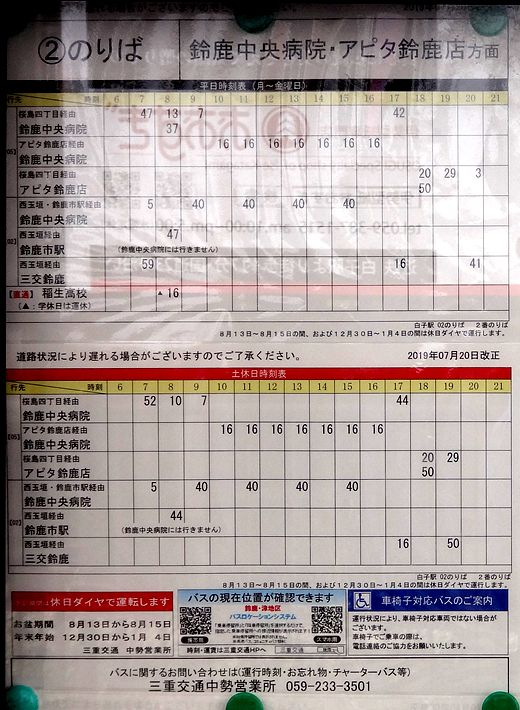 ②のりば 鈴鹿中央病院・アピタ鈴鹿店方面
平日時刻表（月～金曜日）
行先 時刻 6 7 8 9 10 11 12 13 14 15 16 17 18 19 20 21
桜島四丁目経由 47 13 7 42
鈴鹿中央病院 37
[05] アピタ鈴鹿店経由 16 16 16 16 16 16
鈴鹿中央病院
桜島四丁目経由 20 29 3
アピタ鈴鹿店 50
西玉垣・鈴鹿市駅経由 5 40 40 40 40
鈴鹿中央病院
[02] 西玉垣経由 47
鈴鹿市駅 （鈴鹿中央病院には行きません）
西玉垣経由 59 16 41
三交鈴鹿
【直通】稲生高校 ▲16
（▲：学休日は運休）
白子駅 02のりば 2番のりば
8月13日～8月15日の間、および12月30日～1月4日の間は休日ダイヤで運行します。
道路状況により遅れる場合がございますのでご了承ください。 2019年07月20日改正
土休日時刻表
行先 時刻 6 7 8 9 10 11 12 13 14 15 16 17 18 19 20 21
桜島四丁目経由 52 10 7 44
鈴鹿中央病院
[05] アピタ鈴鹿店経由 16 16 16 16 16 16
鈴鹿中央病院
桜島四丁目経由 20 29
アピタ鈴鹿店 50
西玉垣・鈴鹿市駅経由 5 40 40 40 40
鈴鹿中央病院
[02] 西玉垣経由 44
鈴鹿市駅 （鈴鹿中央病院には行きません）
西玉垣経由 16 50
三交鈴鹿
白子駅 02のりば 2番のりば
8月13日～8月15日の間、および12月30日～1月4日の間は休日ダイヤで運行します。
休日ダイヤで運転します
お盆期間 8月13日から8月15日
年末年始 12月30日から1月 4日
三重交通 中勢営業所
バスの現在位置が確認できます
鈴鹿・津地区
バスロケーションシステム
時刻・運賃は三重交通HPへ 三重交通
スマホ用
車椅子対応バスのご案内
運行状況により、車椅子対応車両ではない場合が
ございます。
車椅子でご乗車の際は、
電話連絡のご協力をお願いいたします。
バスに関するお問い合わせは（運行時刻・お忘れ物・チャーターバス等）
三重交通中勢営業所 059-233-3501